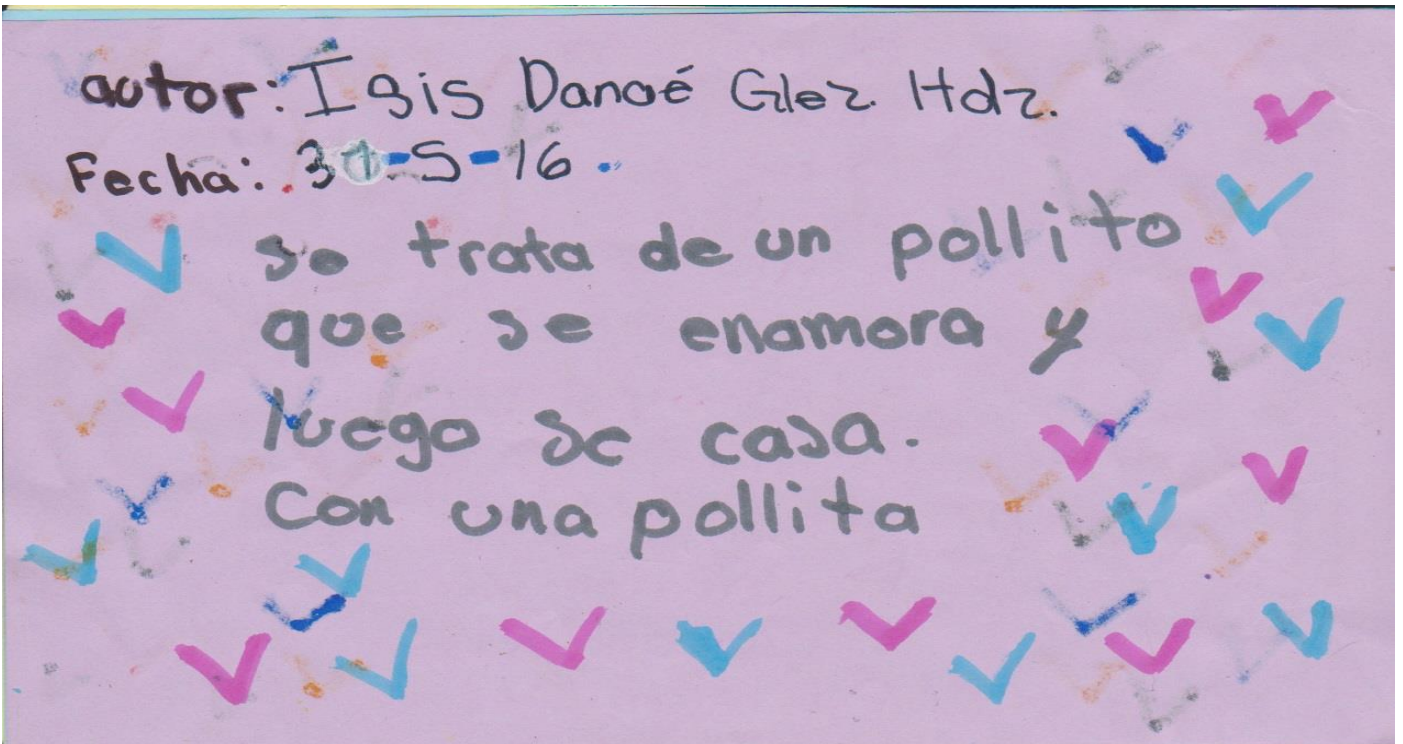 autor: Isis Danaé Glez. Hdz.
Fecha: 31-5-16.
se trata de un pollito
que se enamora y
luego se casa.
Con una pollita